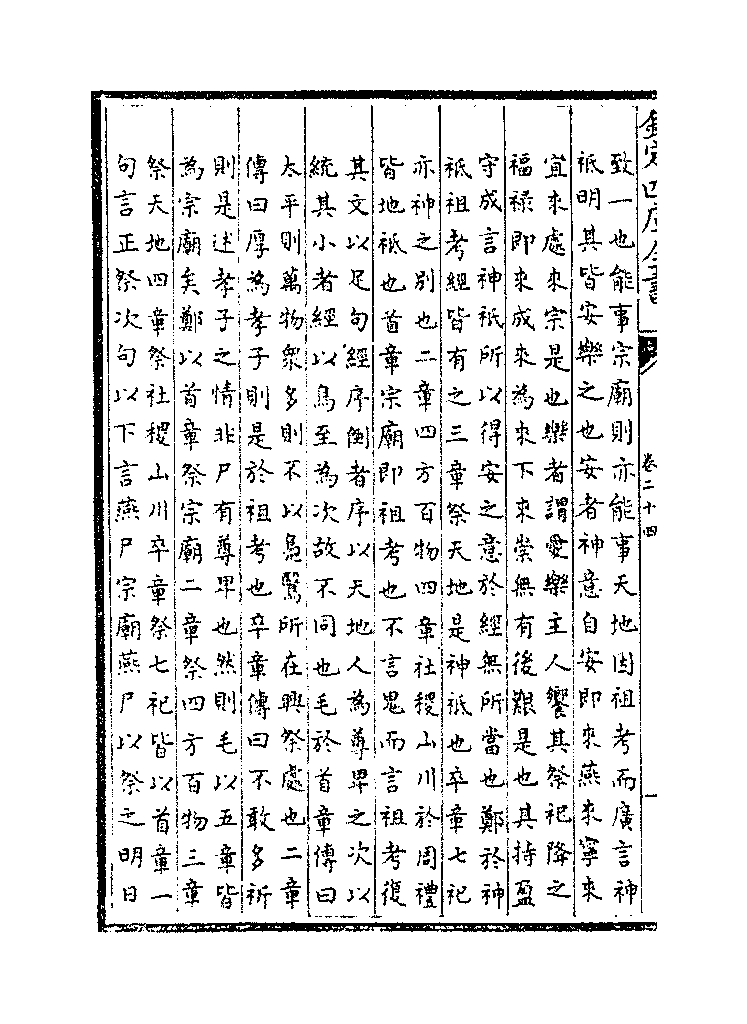 欽定四庫全書
卷二十四
一
致一也能事宗廟則亦能事天地因祖考而廣言神
祇明其皆安樂之也安者神意自安即來燕來寧來
宜來處來宗是也樂者謂愛樂主人饗其祭祀降之
福祿即來成來為來下來崇無有後艱是也其持盈
守成言神祇所以得安之意於經無所當也鄭於神
祇祖考經皆有之三章祭天地是神祇也卒章七祀
亦神之別也二章四方百物四章社稷山川於周禮
皆地祇也首章宗廟即祖考也不言鬼而言祖考復
其文以足句經序倒者序以天地人為尊卑之次以
統其小者經以鳥至為次故不同也毛於首章傳曰
太平則萬物衆多則不以鳧鷖所在興祭處也二章
傳曰厚為孝子則是於祖考也卒章傳曰不敢多祈
則是述孝子之情非尸有尊卑也然則毛以五章皆
為宗廟矣鄭以首章祭宗廟二章祭四方百物三章
祭天地四章祭社稷山川卒章祭七祀皆以首章一
句言正祭次句以下言燕尸宗廟燕尸以祭之明日